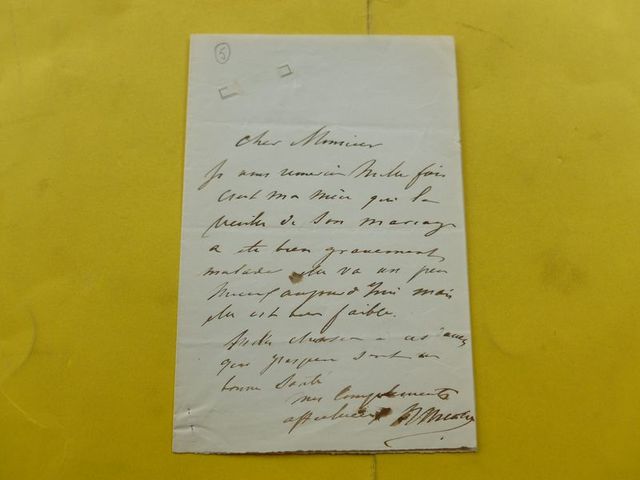 5
cher Monsieur
Je vous remercie mille fois
c'est ma mère qui la
veille de son mariage
a été bien gravement
malade elle va un peu
mieux aujourd'hui mais
elle est bien faible.
que j'espère sont en
bonne santé
mes compliments
affectueux